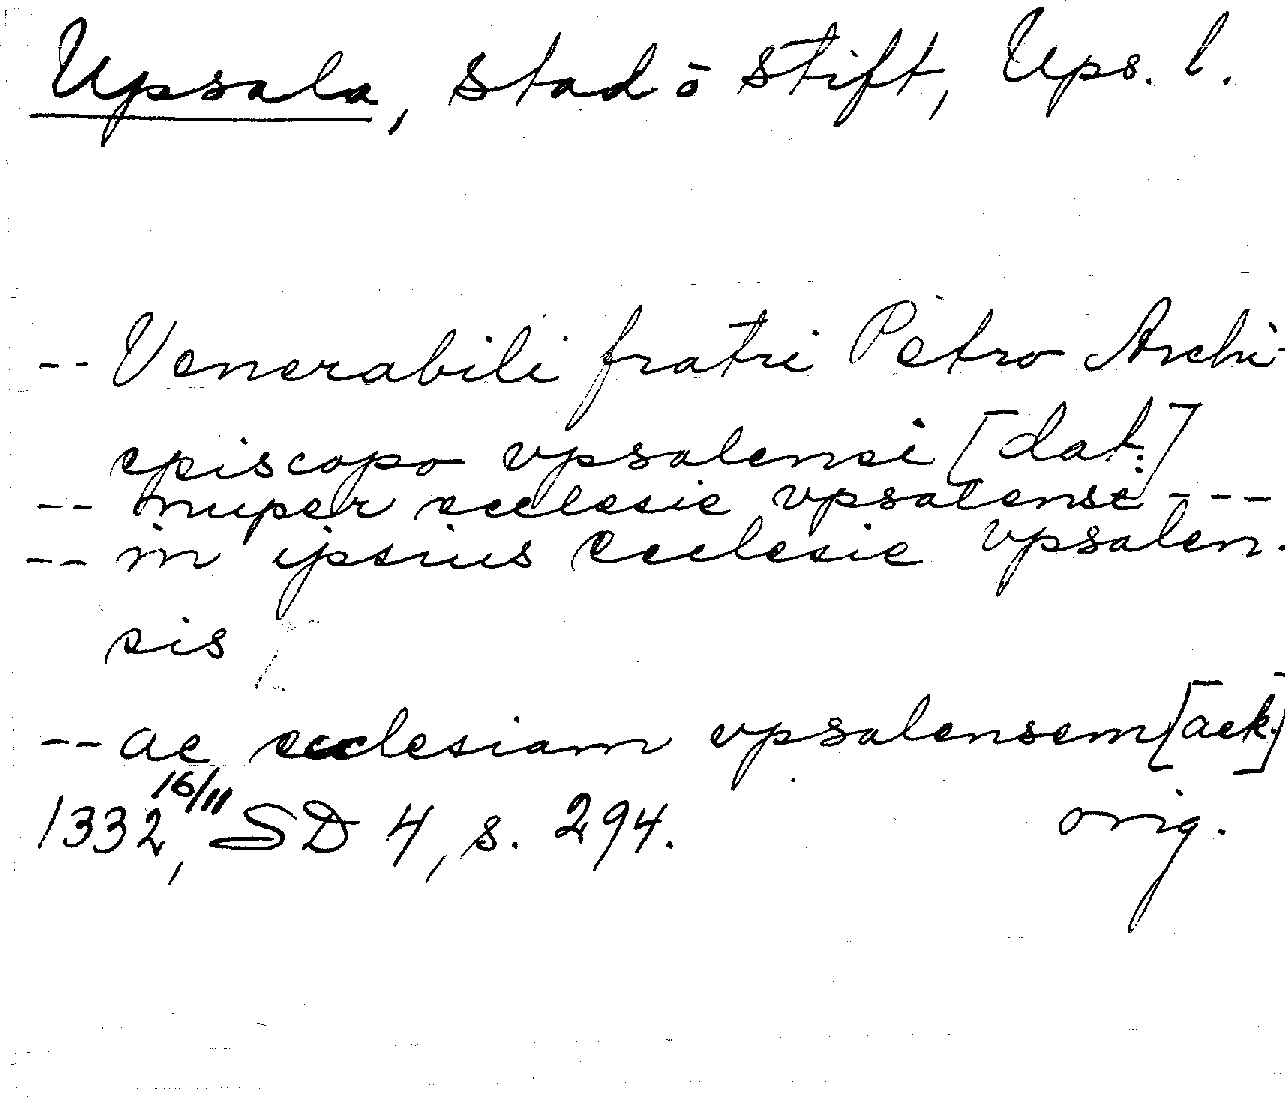 Upsala, stad ō stift, Ups. l.
-- Venerabili fratri Petro Archi-
episcopo vpsalensi [dat.]
-- nuper ecclesie vpsalense - - -
-- in ipsius ecclesie vpsalen-
sis
-- ac ecclesiam vpsalensem [ack.]
1332, 16/11 SD 4, s. 294. orig.